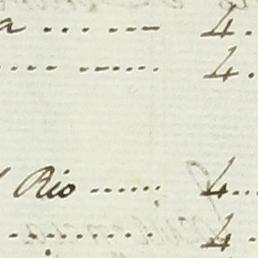 a ... .. -- 4.
.... ..... 4.
Rio ...... 4...
............ 4..